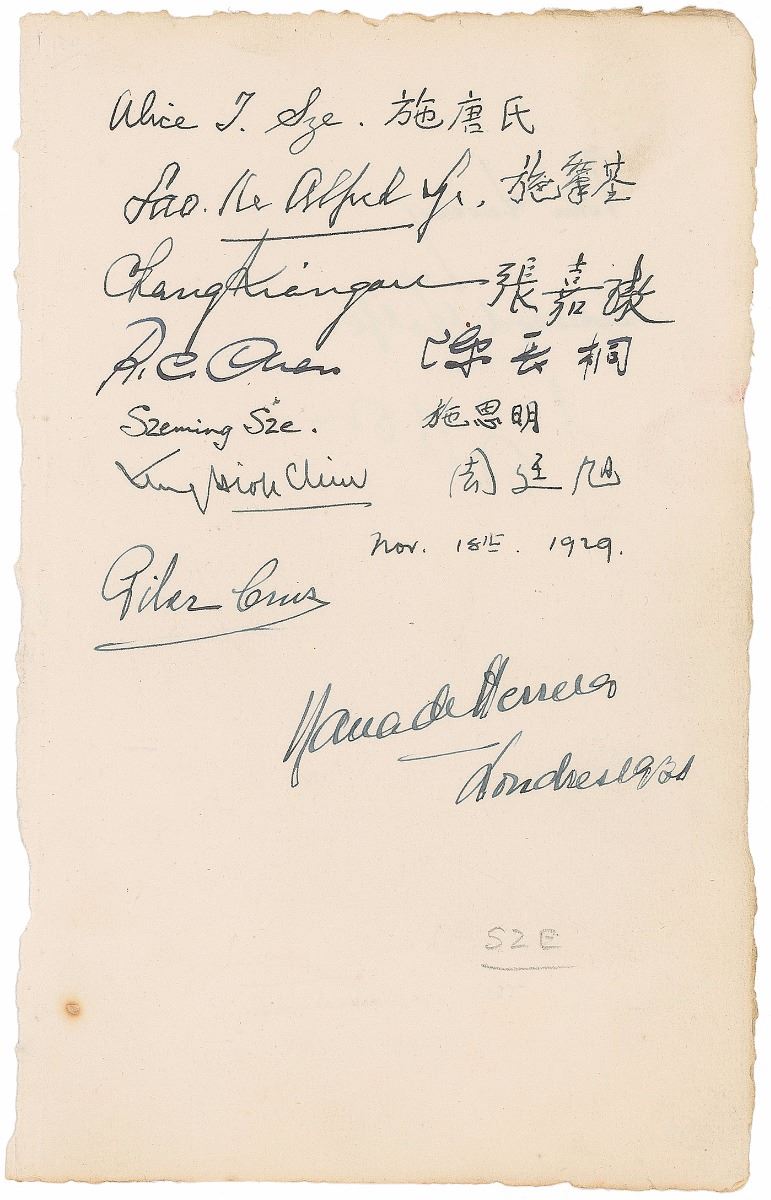 Alice T. Sze. 施唐氏
Sao. Ke Alfred Sze. 施肇基
Chang Kiangau 張嘉璈
K. C. Chen 陳長桐
Szeming Sze. 施思明
Chow 周廷旭
Nov. 18th. 1929.
Pilar Cruz
Maria de Herrera
Londres 1931
SZE